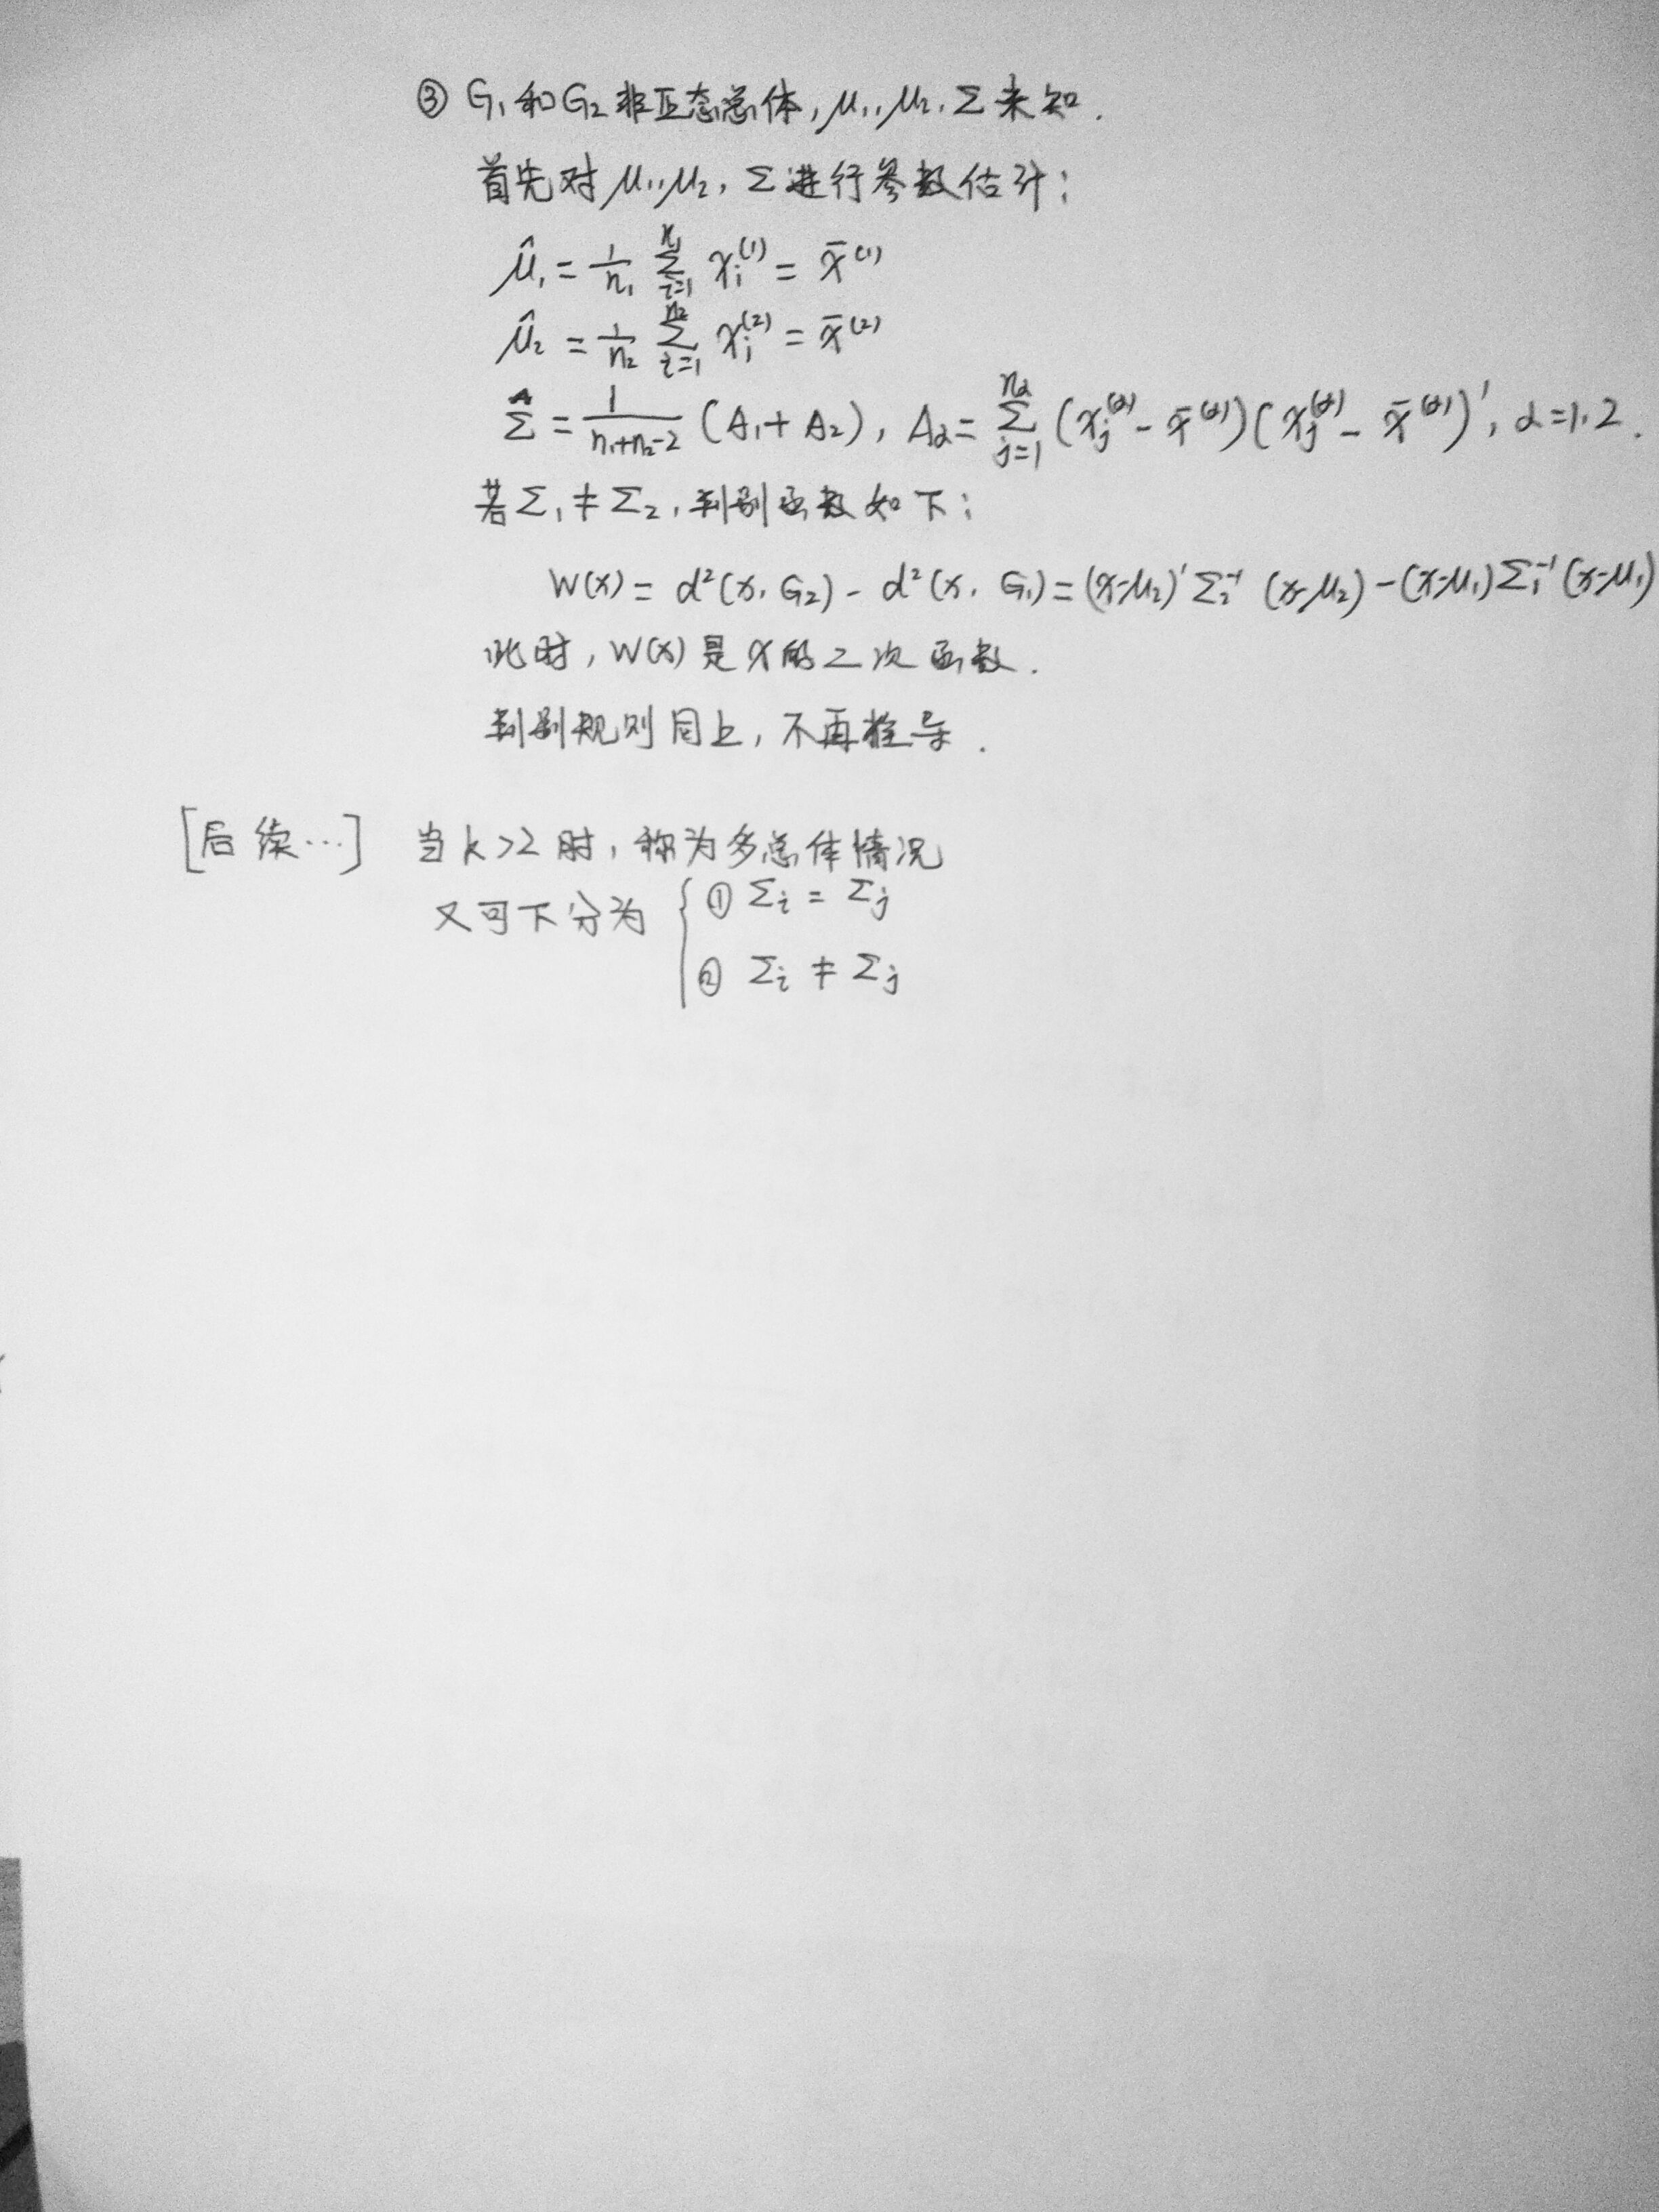 ③ G₁和G₂非正态总体,μ₁,μ₂,Σ未知.
首先对μ₁,μ₂,Σ进行参数估计:
μ̂₁ = 1/n₁ Σ_{i=1}^{n₁} x_i^{(1)} = x̄^{(1)}
μ̂₂ = 1/n₂ Σ_{i=1}^{n₂} x_i^{(2)} = x̄^{(2)}
Σ̂ = 1/(n₁+n₂-2) (A₁+A₂), A_α = Σ_{j=1}^{n_α} (x_j^{(α)} - x̄^{(α)})(x_j^{(α)} - x̄^{(α)})', α=1,2.
若Σ₁≠Σ₂,判别函数如下:
W(x) = d²(x, G₂) - d²(x, G₁) = (x-μ₂)'Σ₂⁻¹(x-μ₂) - (x-μ₁)Σ₁⁻¹(x-μ₁)
此时,W(x)是x的二次函数.
判别规则同上,不再推导.
[后续…] 当k>2时,称为多总体情况
又可下分为 { ① Σ_i = Σ_j
② Σ_i ≠ Σ_j